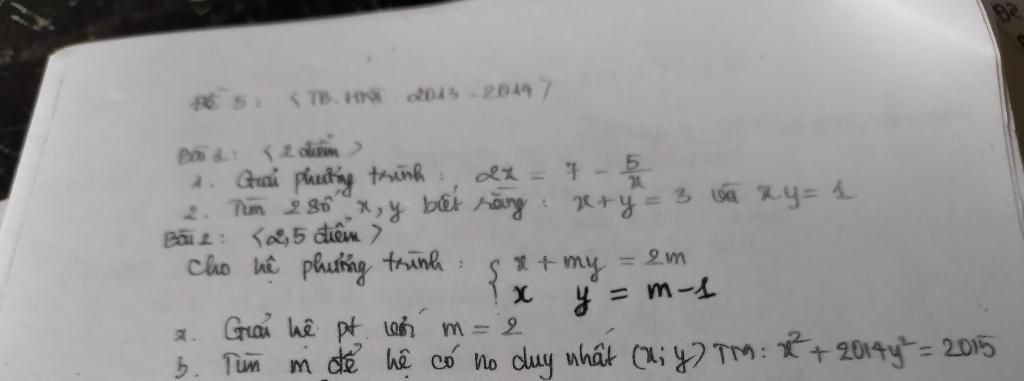 Đề 5: (TB. HKII. 2013-2014)
Bài 1: (2 điểm)
1. Giải phương trình: 2x = 7 - 5/x
2. Tìm 2 số x, y biết rằng: x+y = 3 và x.y = 1
Bài 2: (2,5 điểm)
Cho hệ phương trình: { x + my = 2m
x y = m-1
a. Giải hệ pt với m = 2
b. Tìm m để hệ có no duy nhất (x; y) TM: x² + 2014y² = 2015